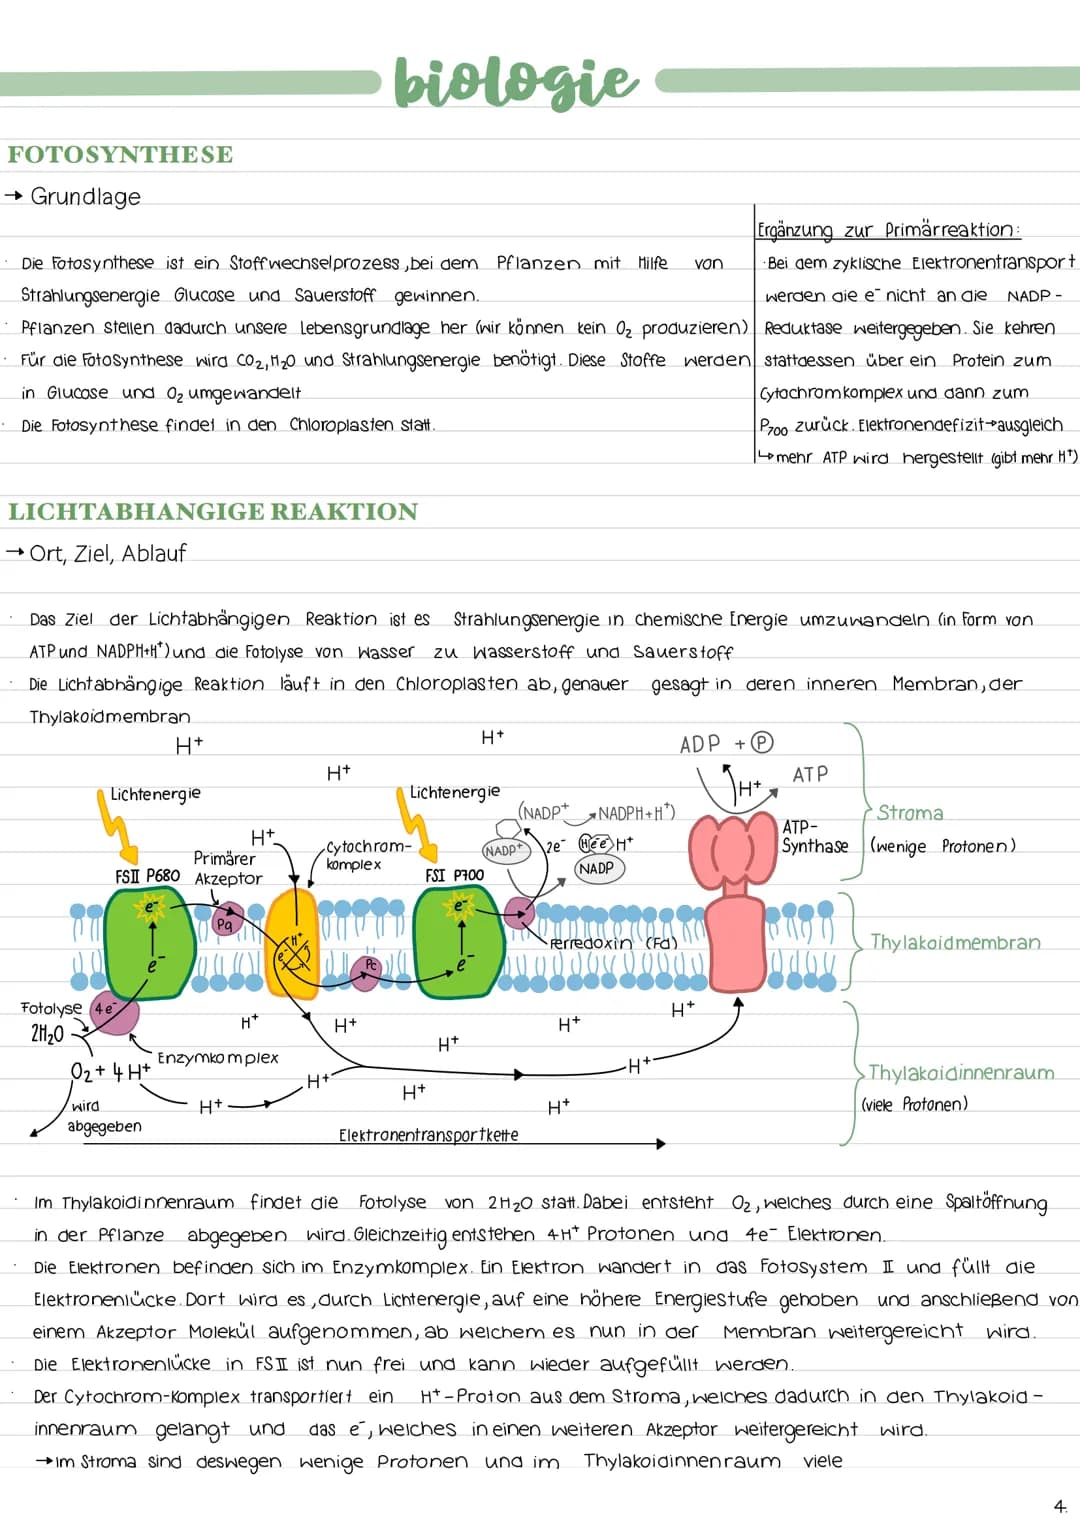 biologie
FOTOSYNTHESE
→ Grundlage
· Die Fotosynthese ist ein Stoffwechselprozess, bei dem Pflanzen mit Hilfe von
Strahlungsenergie Glucose und Sauerstoff gewinnen.
· Pflanzen stellen dadurch unsere Lebensgrundlage her (wir können kein O₂ produzieren)
· Für die Fotosynthese wird CO₂, H₂O und Strahlungsenergie benötigt. Diese Stoffe werden
in Glucose und O₂ umgewandelt
· Die Fotosynthese findet in den Chloroplasten statt.
Ergänzung zur Primärreaktion:
· Bei dem zyklische Elektronentransport
werden die e⁻ nicht an die NADP-
Reduktase weitergegeben. Sie kehren
stattdessen über ein Protein zum
Cytochromkomplex und dann zum
P₇₀₀ zurück. Elektronendefizit→ausgleich
↳ mehr ATP wird hergestellt (gibt mehr H⁺)
LICHTABHANGIGE REAKTION
→ Ort, Ziel, Ablauf
· Das Ziel der Lichtabhängigen Reaktion ist es Strahlungsenergie in chemische Energie umzuwandeln (in Form von
ATP und NADPH+H⁺) und die Fotolyse von Wasser zu Wasserstoff und Sauerstoff
· Die Lichtabhängige Reaktion läuft in den Chloroplasten ab, genauer gesagt in deren inneren Membran, der
Thylakoidmembran
H+
H+
ADP + P
H+
ATP
H+
Lichtenergie
Lichtenergie
(NADP⁺ → NADPH+H⁺)
Stroma
(wenige Protonen)
H+
Cytochrom-
komplex
NADP⁺
2e⁻
H e⁻e⁻ H⁺
NADP
ATP-
Synthase
Primärer
Akzeptor
FSII P680
FSI P700
e⁻
Pq
e⁻
H⁺
e⁻
Pc
e⁻
e⁻
Ferredoxin (Fd)
Thylakoidmembran
Fotolyse
4e⁻
2H₂O
H+
H+
H+
H+
H+
O₂ + 4H+
Enzymkomplex
H+
H+
H+
Thylakoidinnenraum
(viele Protonen)
wird
abgegeben
H+
H+
Elektronentransportkette
· Im Thylakoidinnenraum findet die Fotolyse von 2H₂O statt. Dabei entsteht O₂, welches durch eine Spaltöffnung
in der Pflanze abgegeben wird. Gleichzeitig entstehen 4H⁺ Protonen und 4e⁻ Elektronen.
· Die Elektronen befinden sich im Enzymkomplex. Ein Elektron wandert in das Fotosystem II und füllt die
Elektronenlücke. Dort wird es, durch Lichtenergie, auf eine höhere Energiestufe gehoben und anschließend von
einem Akzeptor Molekül aufgenommen, ab welchem es nun in der Membran weitergereicht wird.
· Die Elektronenlücke in FSII ist nun frei und kann wieder aufgefüllt werden.
· Der Cytochrom-Komplex transportiert ein H⁺-Proton aus dem Stroma, welches dadurch in den Thylakoid-
innenraum gelangt und das e⁻, welches in einen weiteren Akzeptor weitergereicht wird.
→ Im Stroma sind deswegen wenige Protonen und im Thylakoidinnenraum viele
4.